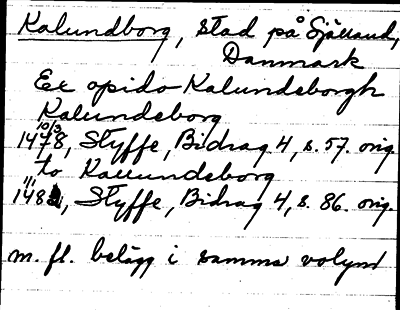 Kalundborg, stad på Själland,
Danmark
Ex opido Kalundeborgh
Kalundeborg
10/3
1478, Styffe, Bidrag 4, s. 57. orig.
to Kallundeborg
1/11
148, Styffe, Bidrag 4, s. 86. orig.
m. fl. belägg i samma volym